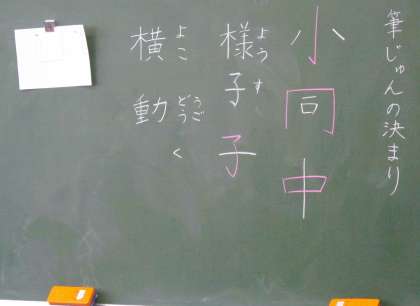 筆じゅんの決まり
小同中
様子子
ようす
横動く
よこ
どう
うご